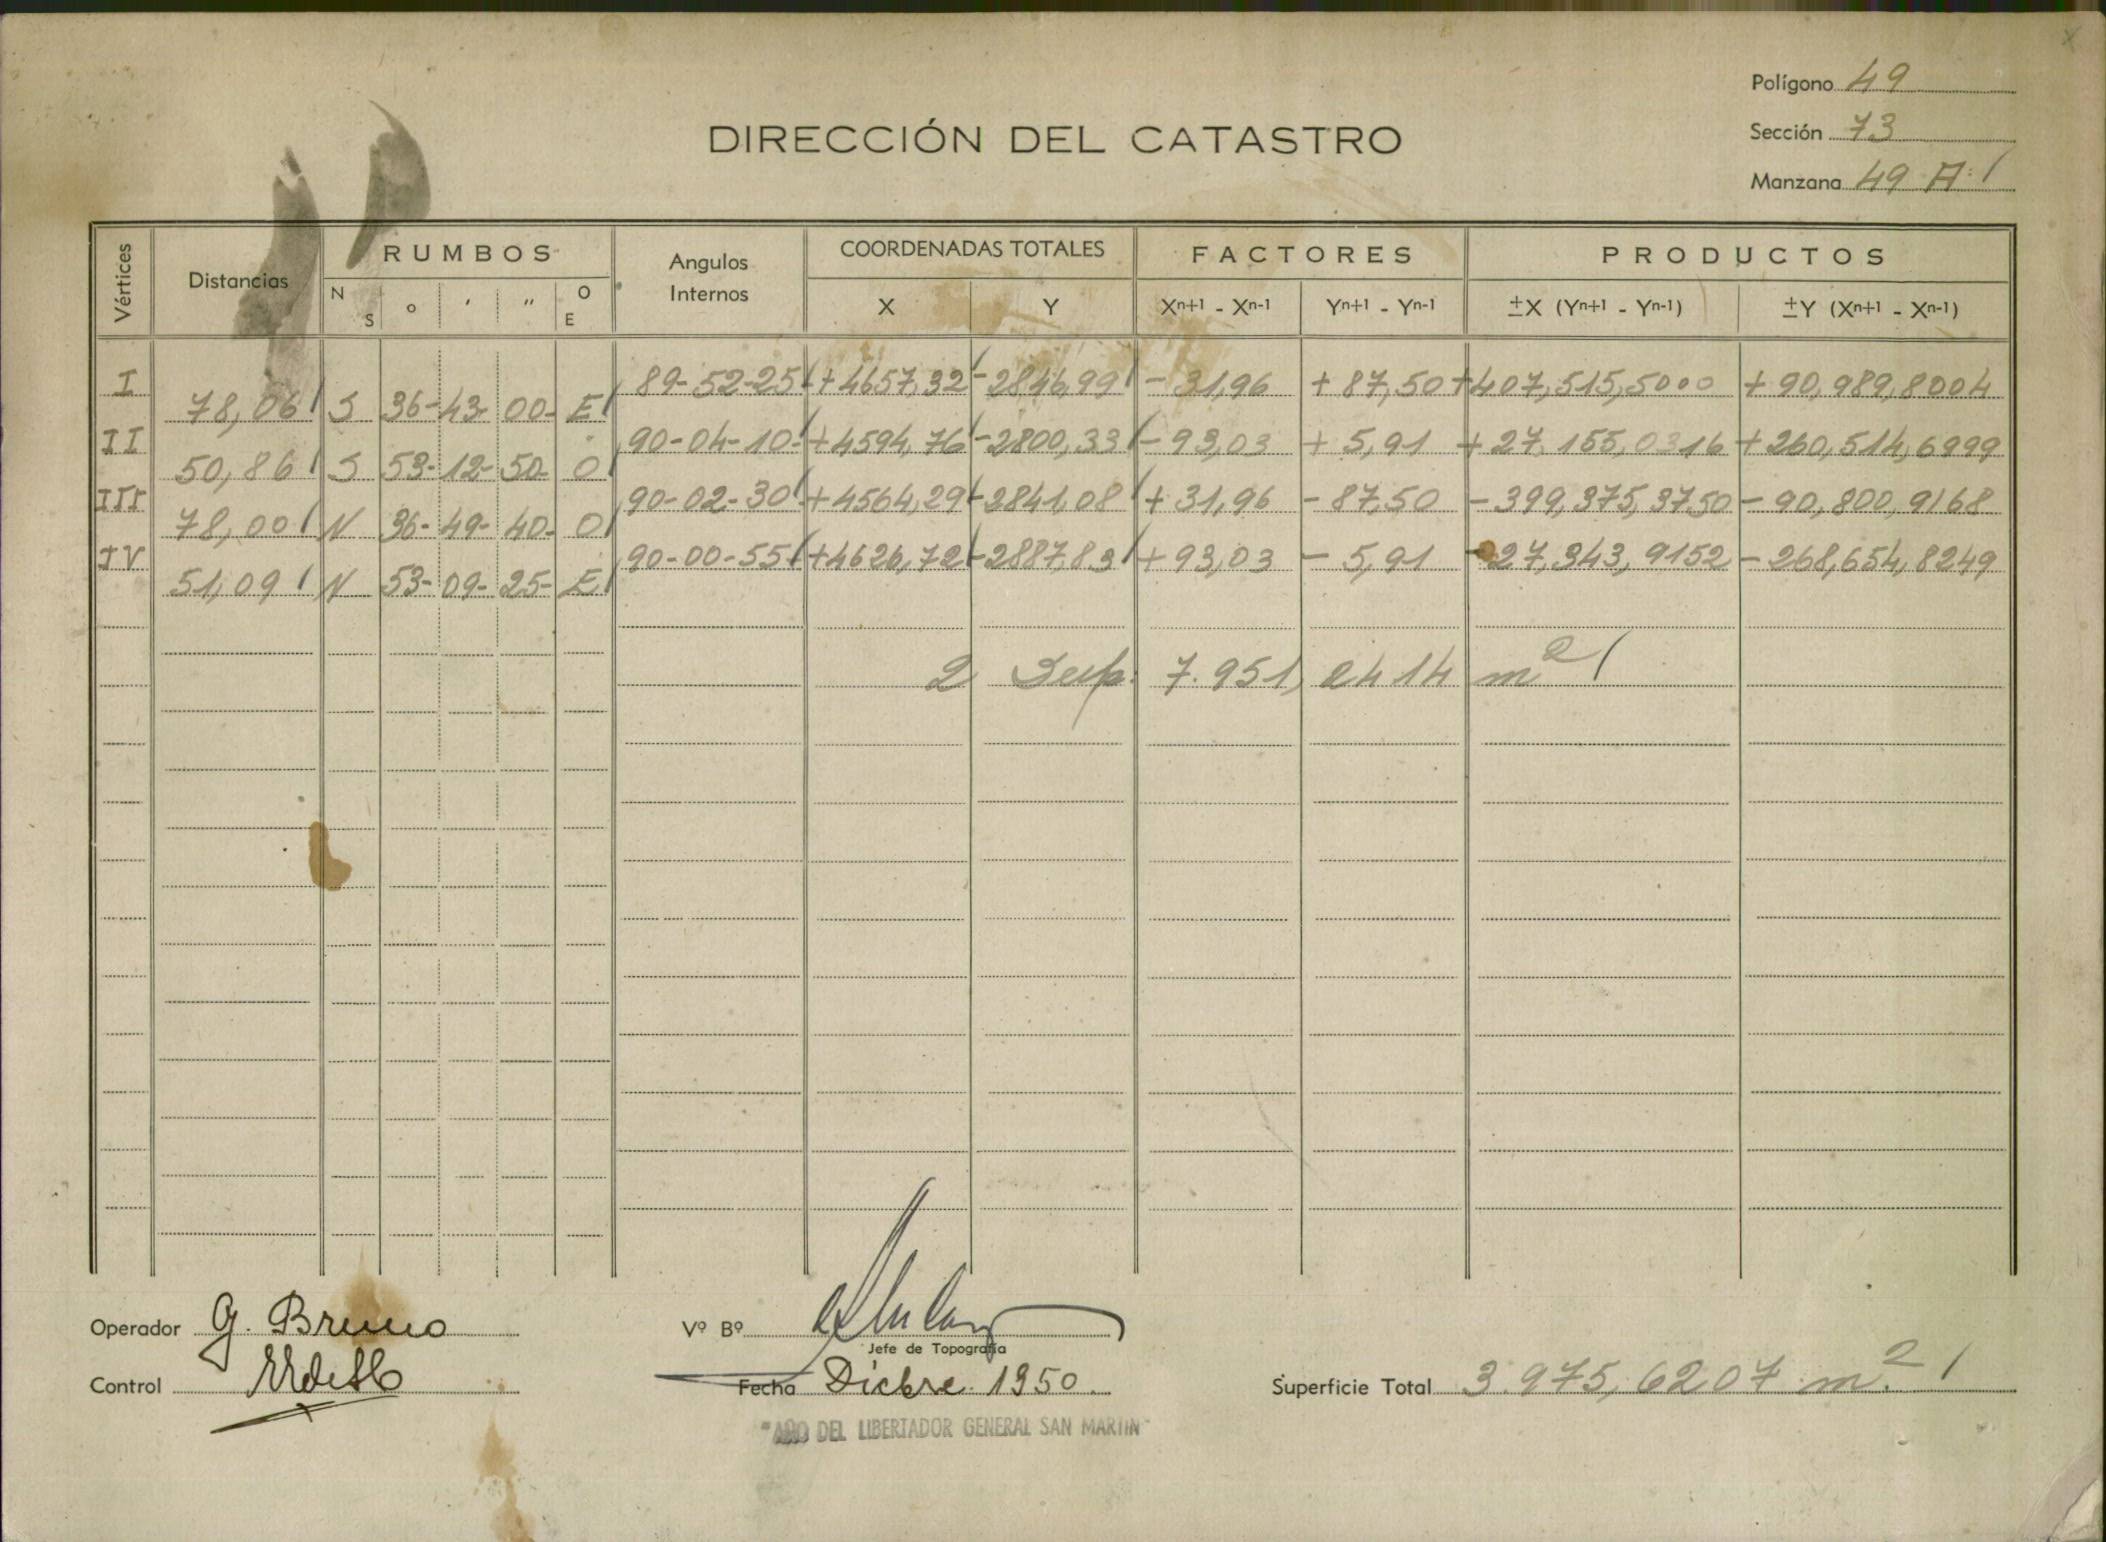 Polígono 49
DIRECCIÓN DEL CATASTRO
Sección 73
Manzana 49 A
Vértices Distancias RUMBOS N S o ' " O E Angulos Internos COORDENADAS TOTALES X Y FACTORES Xn+1 - Xn-1 Yn+1 - Yn-1 PRODUCTOS ±X (Yn+1 - Yn-1) ±Y (Xn+1 - Xn-1)
I 89-52-25 +4657,32 -2846,99 -31,96 +87,50 +407,515,5000 +90,989,8004
78,06 S 36-43-00- E
II 90-04-10- +4594,76 -2800,33 -93,03 +5,91 +27,155,0316 +260,514,6999
50,86 S 53-12-50- O
III 90-02-30 +4564,29 -2841,08 +31,96 -87,50 -399,375,3750 -90,800,9168
78,00 N 36-49-40- O
IV 90-00-55 +4626,72 -2887,83 +93,03 -5,91 -27,343,9152 -268,654,8249
51,09 N 53-09-25- E
2 Sup. 7.951,2414 m2
Operador G. Bruno
Vº Bº
Jefe de Topografía
Control
Fecha Dicbre. 1950.
Superficie Total 3.975,6207 m.2
"AÑO DEL LIBERTADOR GENERAL SAN MARTIN"